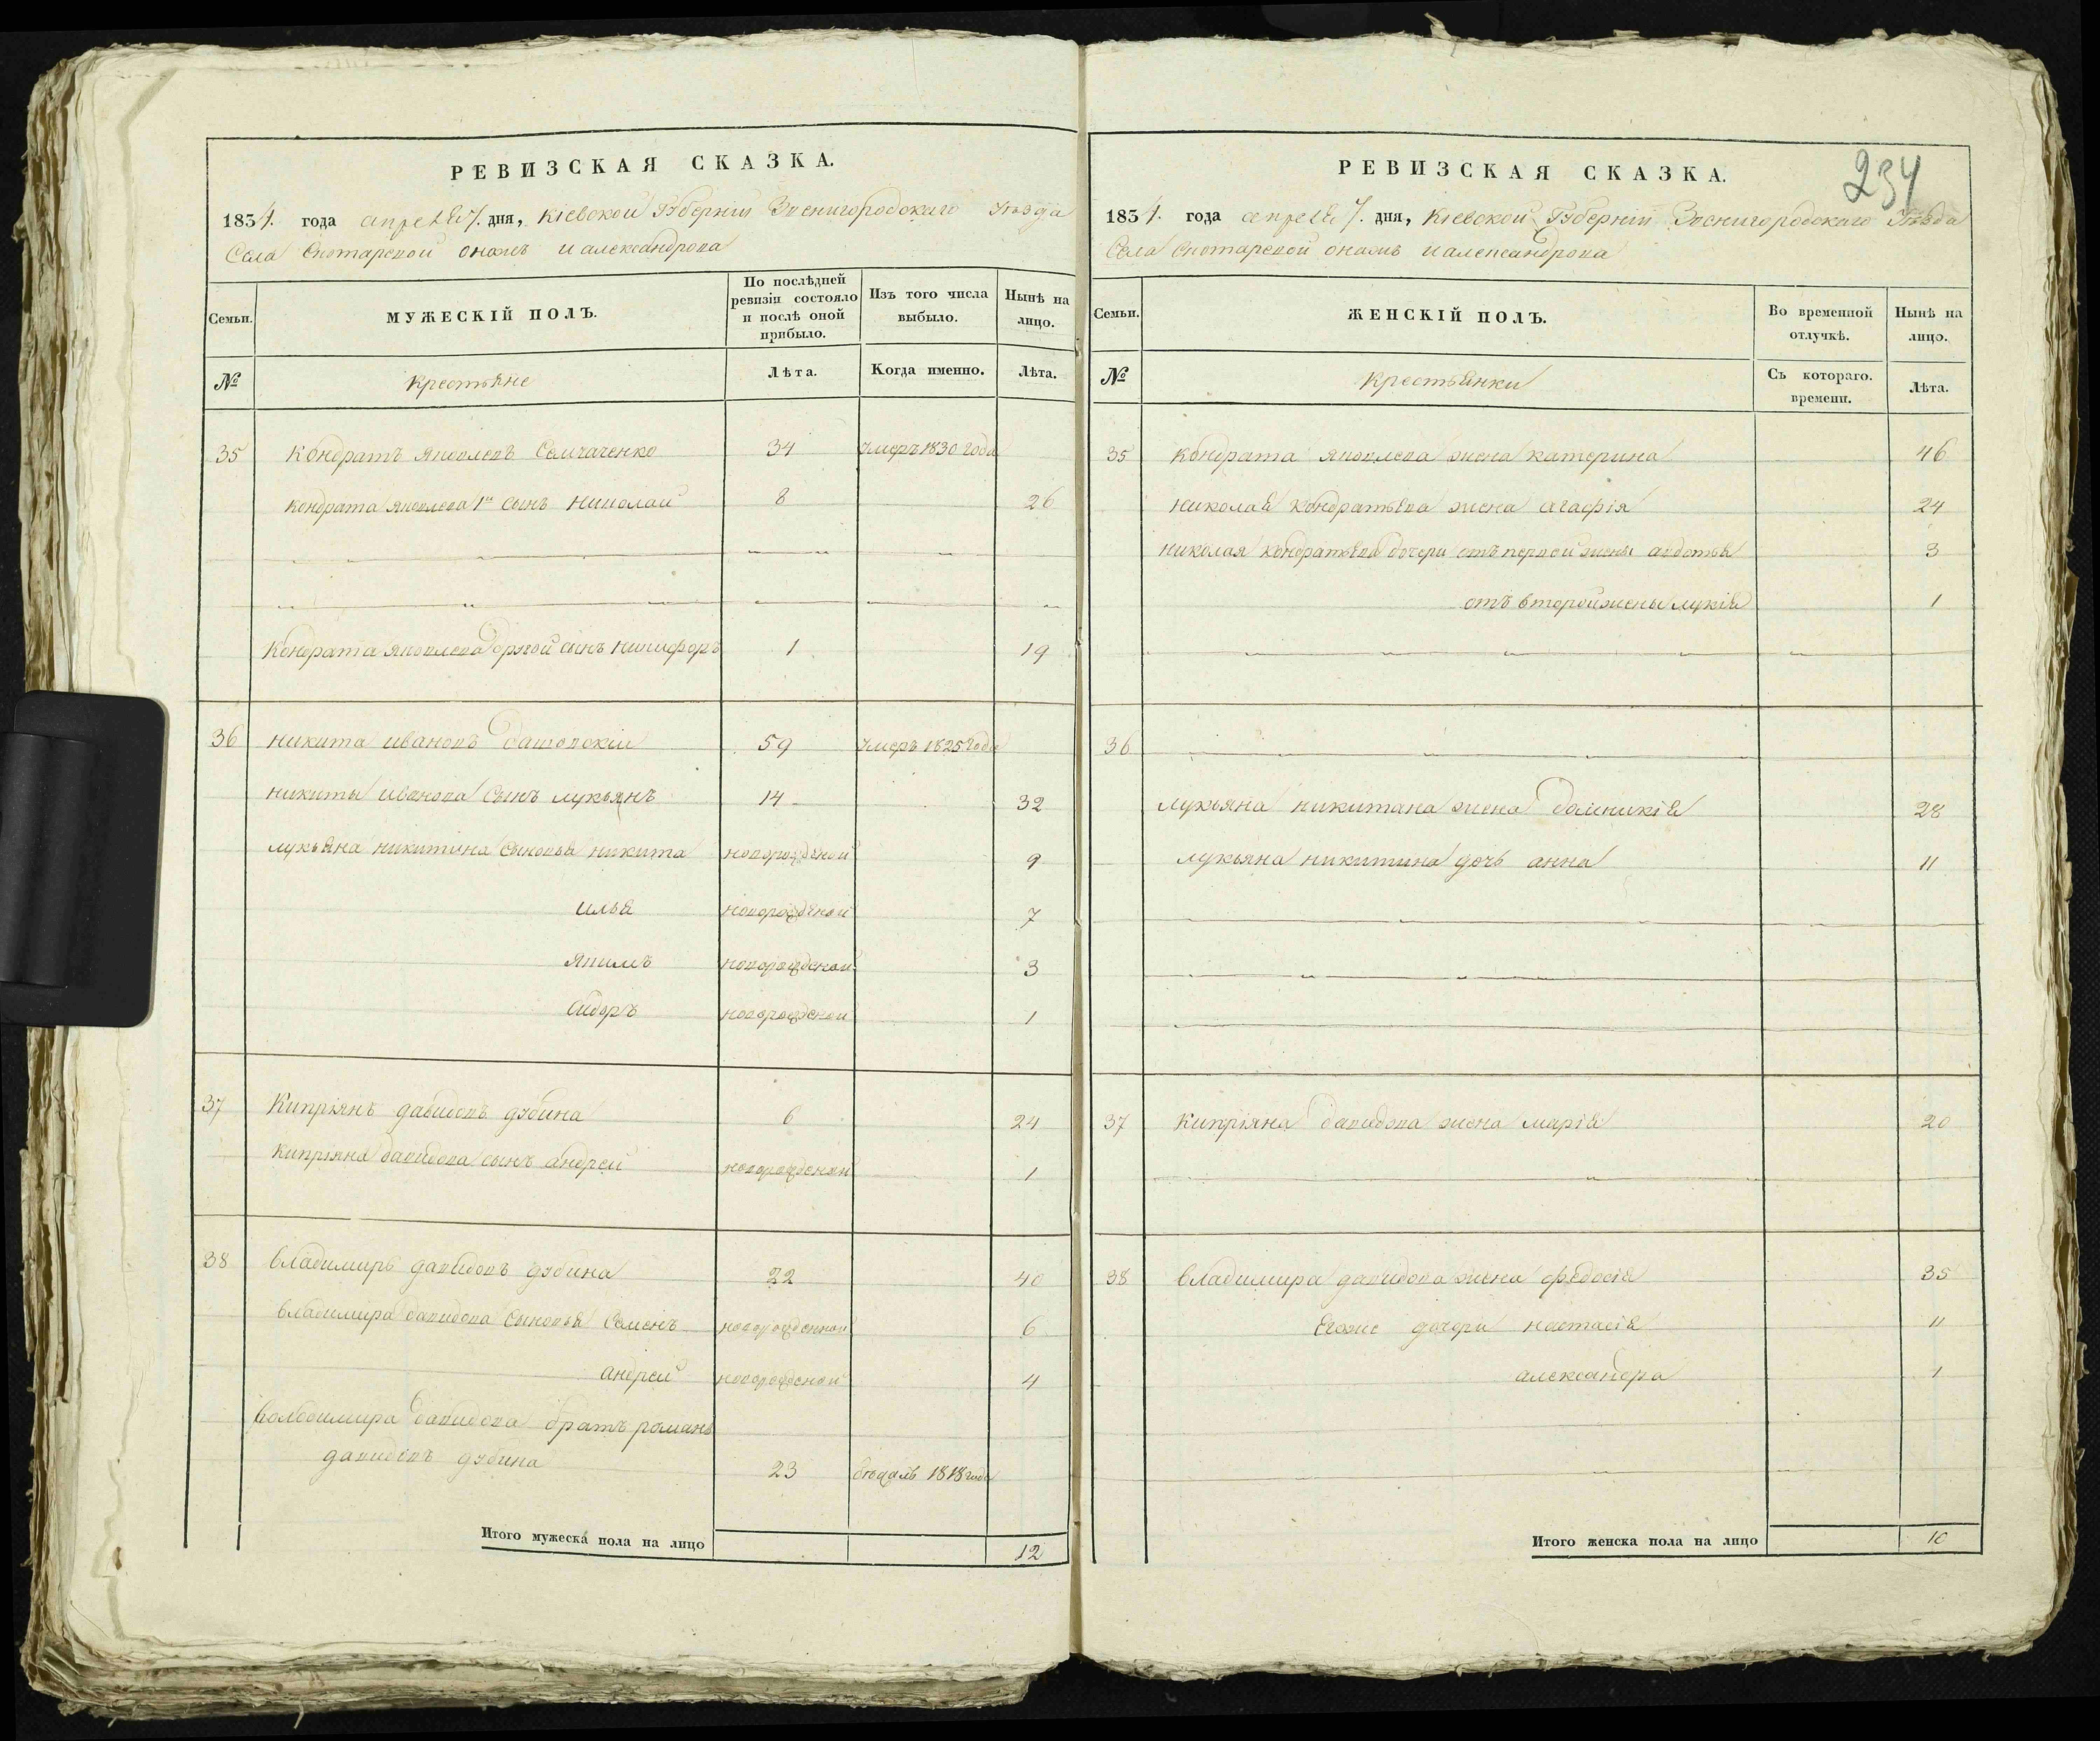 РЕВИЗСКАЯ СКАЗКА.
1834. года апреля 7. дня, Кіевской Губерніи Звенигородского Уѣзда
Села Скотарской онажъ и александрова
Семьи. МУЖЕСКІЙ ПОЛЪ. По послѣдней ревизіи состояло и послѣ оной прибыло. Изъ того числа выбыло. Нынѣ на лицо.
№ Крестьяне Лѣта. Когда именно. Лѣта.
35 Кондратъ яковлевъ 34 умеръ 1830 года
Кондрата яковлева 1й сынъ Николай 8 26
Кондрата яковлева другой сынъ никифоръ 1 19
36 никита ивановъ 59 умеръ 1825 года
никиты иванова сынъ лукьянъ 14 32
лукьяна никитина сыновья никита новорожденой 9
илья новорожденой 7
якимъ новорожденой 3
Сидоръ новорожденой 1
37 Кипріянъ давидовъ дубина 6 24
Кипріяна давидова сынъ андрей новорожденой 1
38 владимиръ давидовъ дубина 22 40
владимира давидова сыновья Семенъ новорожденной 6
андрей новорожденой 4
володимира давидова братъ романъ
давидовъ дубина 23 бѣжалъ 1818 года
Итого мужеска пола на лицо 12
234
РЕВИЗСКАЯ СКАЗКА.
1834. года апреля 7. дня, Кіевской Губерніи Звенигородского Уѣзда
Села Скотарской онажъ и александрова
Семьи. ЖЕНСКІЙ ПОЛЪ. Во временной отлучкѣ. Нынѣ на лицо.
№ Крестьянки Съ котораго. времени. Лѣта.
35 Кондрата яковлева жена катерина 46
николая кондратьева жена агафія 24
николая кондратьева дочери отъ первой жены авдотья 3
отъ второй жены лукія 1
36
лукьяна никитина жена домникія 28
лукьяна никитина дочь анна 11
37 Кипріяна давидова жена марія 20
38 владимира давидова жена федосія 35
Егоже дочери настасія 11
александра 1
Итого женска пола на лицо 10